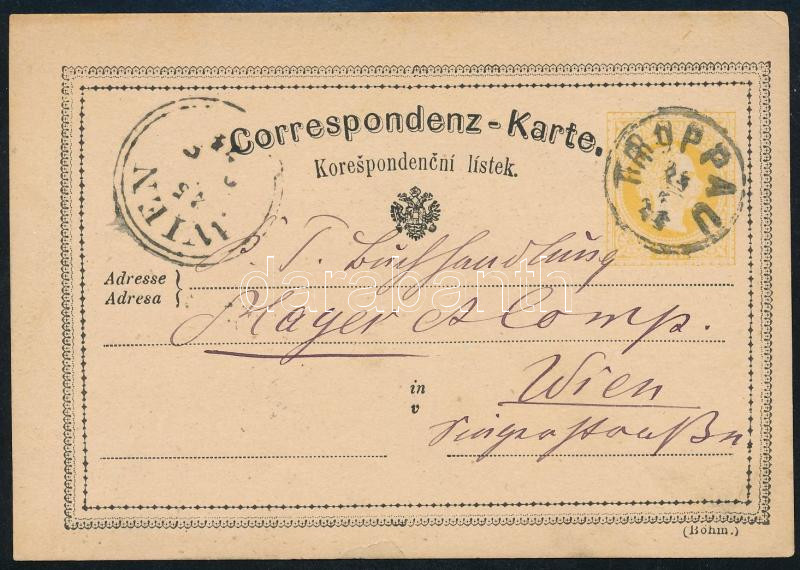 Correspondenz-Karte.
Korešpondenční lístek.
TROPPAU
WIEN
P. T. Buchhandlung
Adresse
Adresa
Mayer & Comp.
in
v
Wien
Singerstraße
(Böhm.)
darabanth